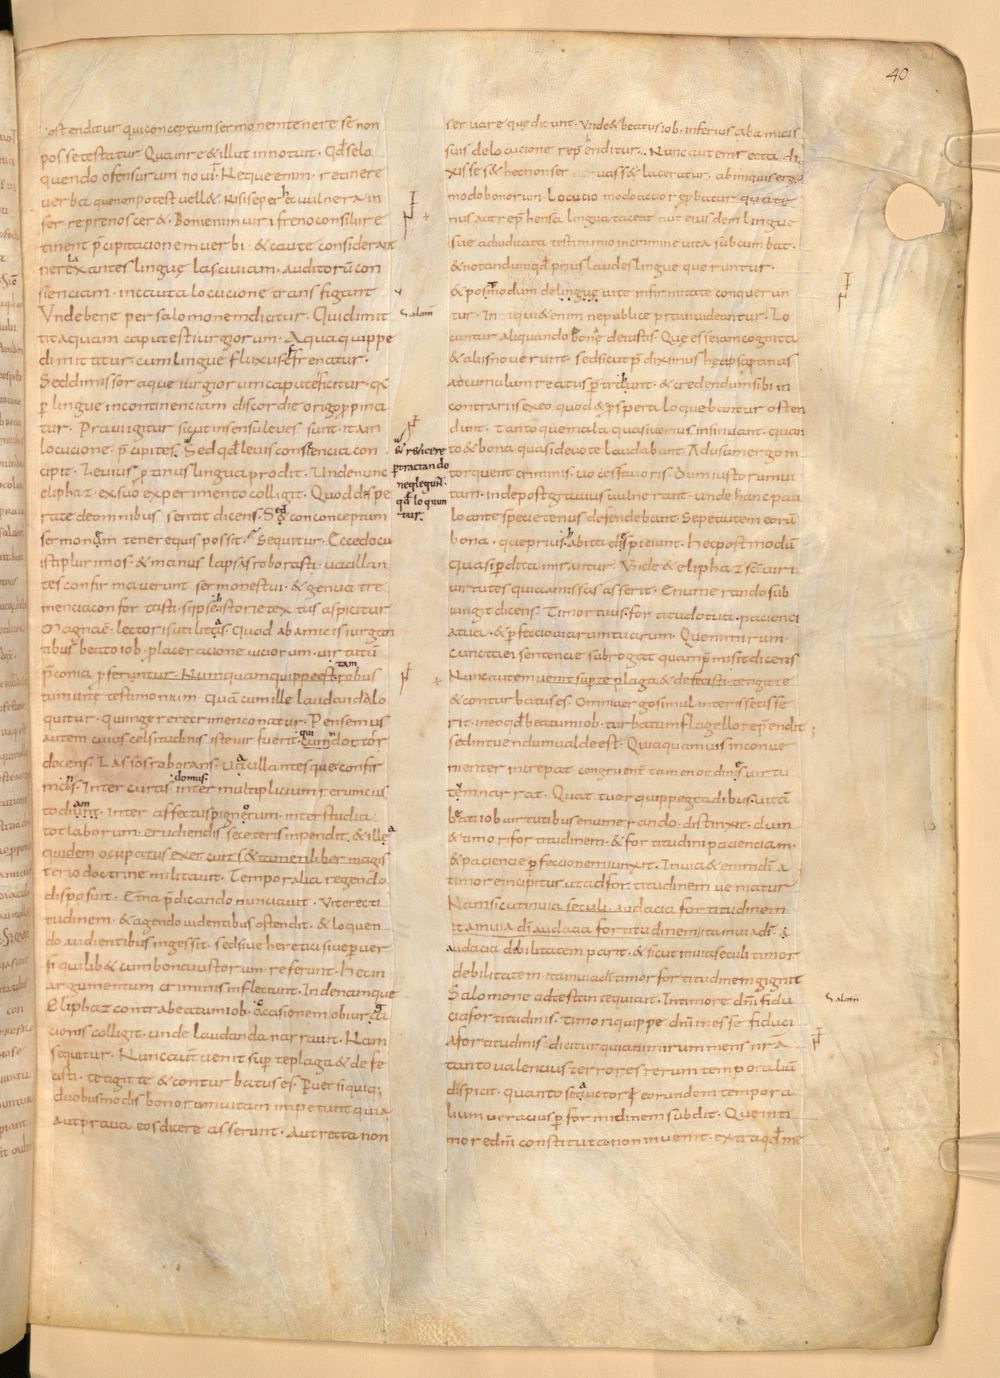 40
ostenditur qui conceptum sermonem tenere se non
posse testatur Quam re & illut innotuit. Qd se lo
quendo ofensurum novit Neque enim. retinere
verba que non potest vell& Nisi se per hec vulnera in
ferre prenoscer&. Bonienim viri freno consilii re
tinent p̄cipitacionem verbi. & caute considerant
ne relaxantes lingue lasciviam. auditorū con
scienciam. incauta locucione transfigant
Unde bene per salomonem dicitur. Qui dimit
tit aquam caput est iurgiorum. Aqua quippe
dimittitur. cum lingue fluxus. frenatur.
Sed dimissor aque iurgiorum caput dicitur. qa
p lingue incontinenciam discordie origo ppina
tur. Pravi igitur sicut in sensu leves sunt. ita in
locucione. p̄cipites. Sed qd levis consciencia con
cipit. Levius p̄tanus lingua prodit. Unde nunc
eliphaz. ex suo experimento colligit. Quod despe
rate de omnibus sentit dicens. Sed conceptum
sermonem tenere quis possit. Sequitur. Ecce docu
isti plurimos. & manus lapsas roborasti. vacillan
tes confirmaverunt sermones tui. & genua tre
mencia confortasti. ipse historie textus aspicitur
Magna ē. lectoris utilitas. Quod ab amicis iurgan
tibus beato iob. placeracione viciorum. virtutū
p̄conia pferuntur. Numquam quippe est robus
tum vite testimonium Quā cum ille laudanda lo
quitur. qui ingerere crimen conatur. Pensemus
autem cuius celsitudinis iste vir fuerit. qui
docens. Lassos roborans. Vacillantesque confir
mans. Inter curas. domus. inter multiplicium rerum cus
todiam. Inter affectus pignorum. inter studia
tot laborum. erudiendis se ceteris inpendit. & ille
quidem ocupatus exercuit s& tamen liber magis
terio doctrine militavit. Temporalia regendo
disposuit. Et̄na p̄dicando nunciavit. Ut recti
tudinem. & agendo videntibus ostendit. & loquen
do audientibus ingessit. sed sive heretici sive perver
si quilib& cum bona iustorum referunt. hec in
argumentum criminis inflectunt. Inde namque
Eliphaz contra beatum iob. ocasionem obiurga
cionis colligit. unde laudanda narravit. Nam
sequitur. Nunc aut̄ venit sup te plaga & defe
cisti. tetigit te & conturbatus es. Pversi quiq;
duobus modis bonorum vitam inpetunt quia
aut prava eos dicere asserunt. Aut recta non
Salom
& re dicere
ptractando
neglegunt.
qd loquun
tur.
servare que dicunt. Unde & beatus iob. inferius ab amicis
suis de locucione rep̄henditur. Nunc autem recta di
xisse s& hec non servass& laceratur. ab iniquis ergo
modo bonorum Locucio modo accio reprbatur quate
nus aut rep̄hensa lingua taceat aut eiusdem lingue
sue adiudicata testimonio in crimine vita subcumbat.
& notandum qd prius laudes lingue queruntur.
& postmodum de lingue vite infirmitate conquerun
tur. Iniqui & enim ne publice pravi videantur. Lo
cuntur aliquando bona de iustis. Que esse iam cognita
& aliis noverunt. sed sicut p̄diximus hec ipsa pravis
ad cumulum reatus ptrahunt. & credendum sibi in
contrariis ex eo quod & p̄spera loquebantur osten
dunt. tanto que mala quasi verius insinuant. quan
to & bona quasi devote laudabant. Adsumerg in
torquent criminis. voces favoris. Dum iustorum vi
tam. inde post gravius vulnerant. unde hanc pau
lo ante specie tenus defendebant. Sepe autem eorū
bona. que prius habita despiciunt. hec postmodū
quasi pdita mirantur. Unde & eliphaz sc̄i viri
virtutes quas amissas asserit. Enumerando sub
iungit dicens Timor tuus. fortitudo tua. pacienci
a tua. & pfeccio viarum tuarum. Que nimirum.
cuncta ei sentencie subrogat quam p̄misit dicens
Nunc autem venit sup te plaga & defecisti. tetigit te
& conturbatus es. Omnia ergo simul interisse asse
rit. in eo qd beatum iob. turbatum flagello rep̄endit;
sed intuendum valde est. Quia quamvis inconve
nienter increpat congruent̄ tamen ordines virtu
tem narrat. Quattuor quippe gradibus. vitā
beati iob virtutibus enumerando. distinxit. dum
& timori fortitudinem. & fortitudini pacienciam.
& paciencie pfeccionem iunxit. In via & enim dī a
timore incipitur ut ad fortitudinem veniatur
Nam sicut in via seculi. audacia fortitudinem.
ita in via dī audacia fortitudinem ita in via dī.
audacia debilitatem parit. & sicut in via seculi timor
debilitatem. ita in via dī amor fortitudinem gignit
Salomone adtestante qui ait. In timore dn̄i fidu
cia fortitudinis. timori quippe dn̄i inesse fiduci
a fortitudinis dicitur quia nimirum mens nr̄a
tanto valencius terrores rerum temporaliū
dispicit. quanto se auctori eorundem tempora
lium veracius p formidinem subdit. Que in ti
more dn̄i constituta. non invenit. extra qd me
Salom